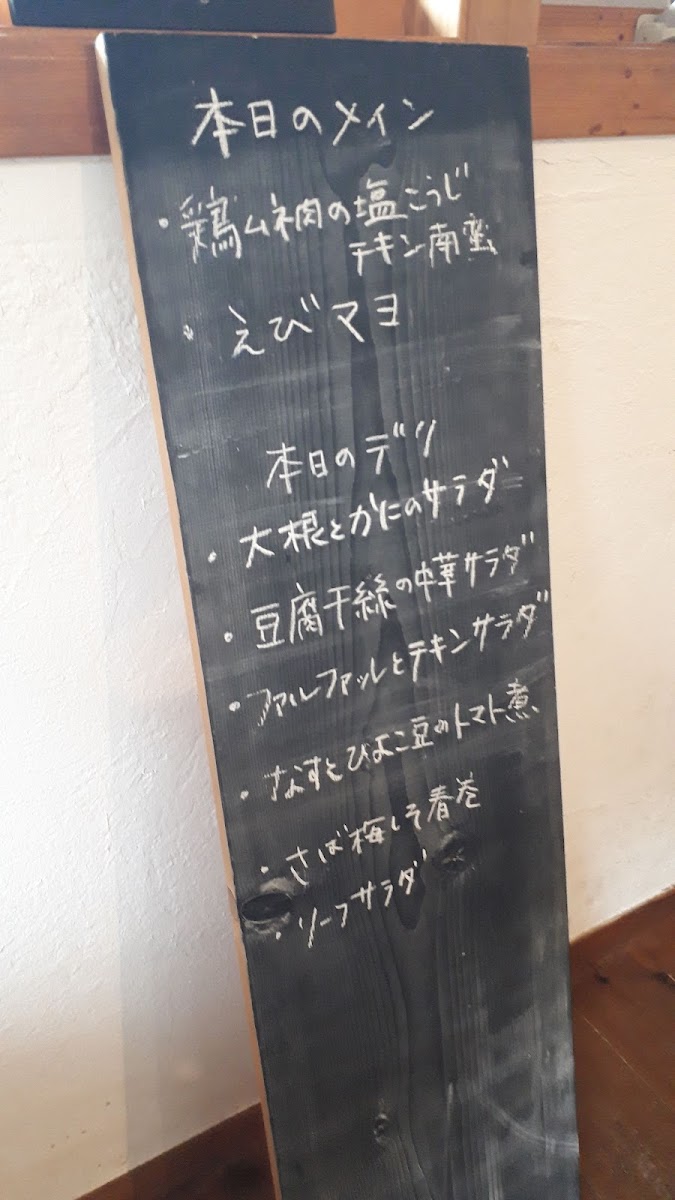 本日のメイン
・鶏ムネ肉の塩こうじ
チキン南蛮
・えびマヨ
本日のデリ
・大根とかにのサラダ
・豆腐干絲の中華サラダ
・ファルファッレとチキンサラダ
・なすとひよこ豆のトマト煮
・さば梅しそ春巻
・リーフサラダ